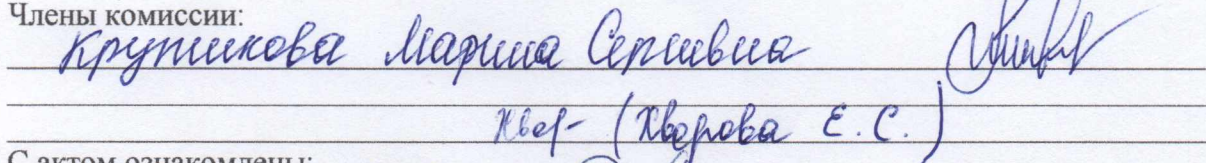 Члены комиссии:
Крутикова Марина Сергеевна
Хвор- (Хворова Е. С.)
С актом ознакомлены: